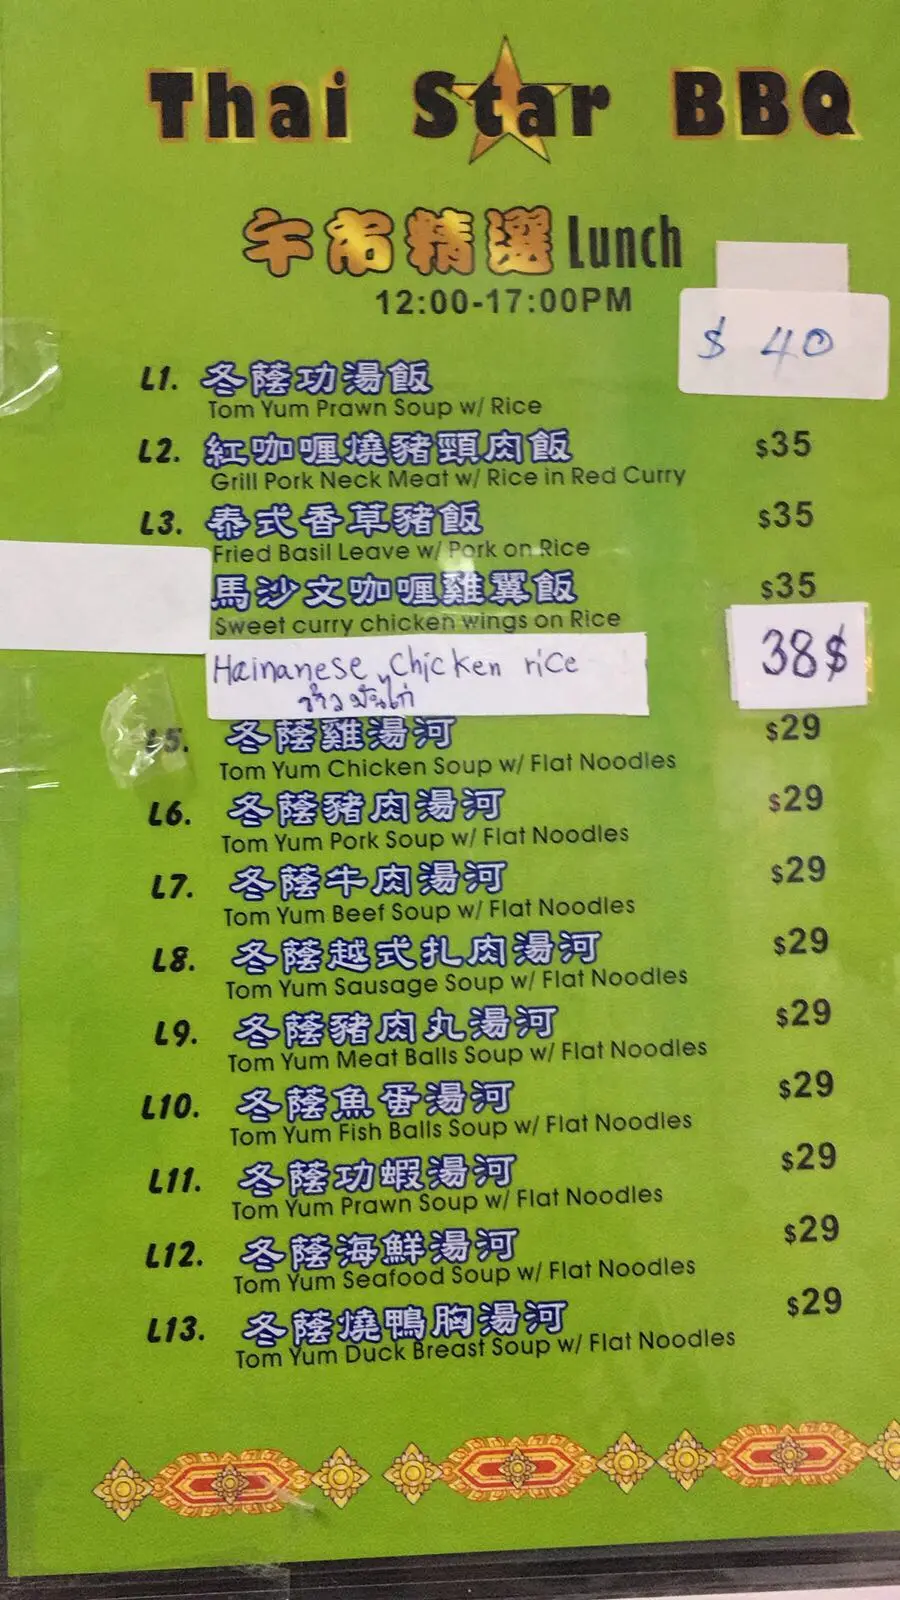 Thai Star BBQ
午市精選 Lunch
12:00-17:00PM
$ 40
L1. 冬蔭功湯飯
Tom Yum Prawn Soup w/ Rice
L2. 紅咖喱燒豬頸肉飯 $35
Grill Pork Neck Meat w/ Rice in Red Curry
L3. 泰式香草豬飯 $35
Fried Basil Leave w/ Pork on Rice
馬沙文咖喱雞翼飯 $35
Sweet curry chicken wings on Rice
Hainanese Chicken rice 38$
ข้าวมันไก่
L5. 冬蔭雞湯河 $29
Tom Yum Chicken Soup w/ Flat Noodles
L6. 冬蔭豬肉湯河 $29
Tom Yum Pork Soup w/ Flat Noodles
L7. 冬蔭牛肉湯河 $29
Tom Yum Beef Soup w/ Flat Noodles
L8. 冬蔭越式扎肉湯河 $29
Tom Yum Sausage Soup w/ Flat Noodles
L9. 冬蔭豬肉丸湯河 $29
Tom Yum Meat Balls Soup w/ Flat Noodles
L10. 冬蔭魚蛋湯河 $29
Tom Yum Fish Balls Soup w/ Flat Noodles
L11. 冬蔭功蝦湯河 $29
Tom Yum Prawn Soup w/ Flat Noodles
L12. 冬蔭海鮮湯河 $29
Tom Yum Seafood Soup w/ Flat Noodles
L13. 冬蔭燒鴨胸湯河 $29
Tom Yum Duck Breast Soup w/ Flat Noodles